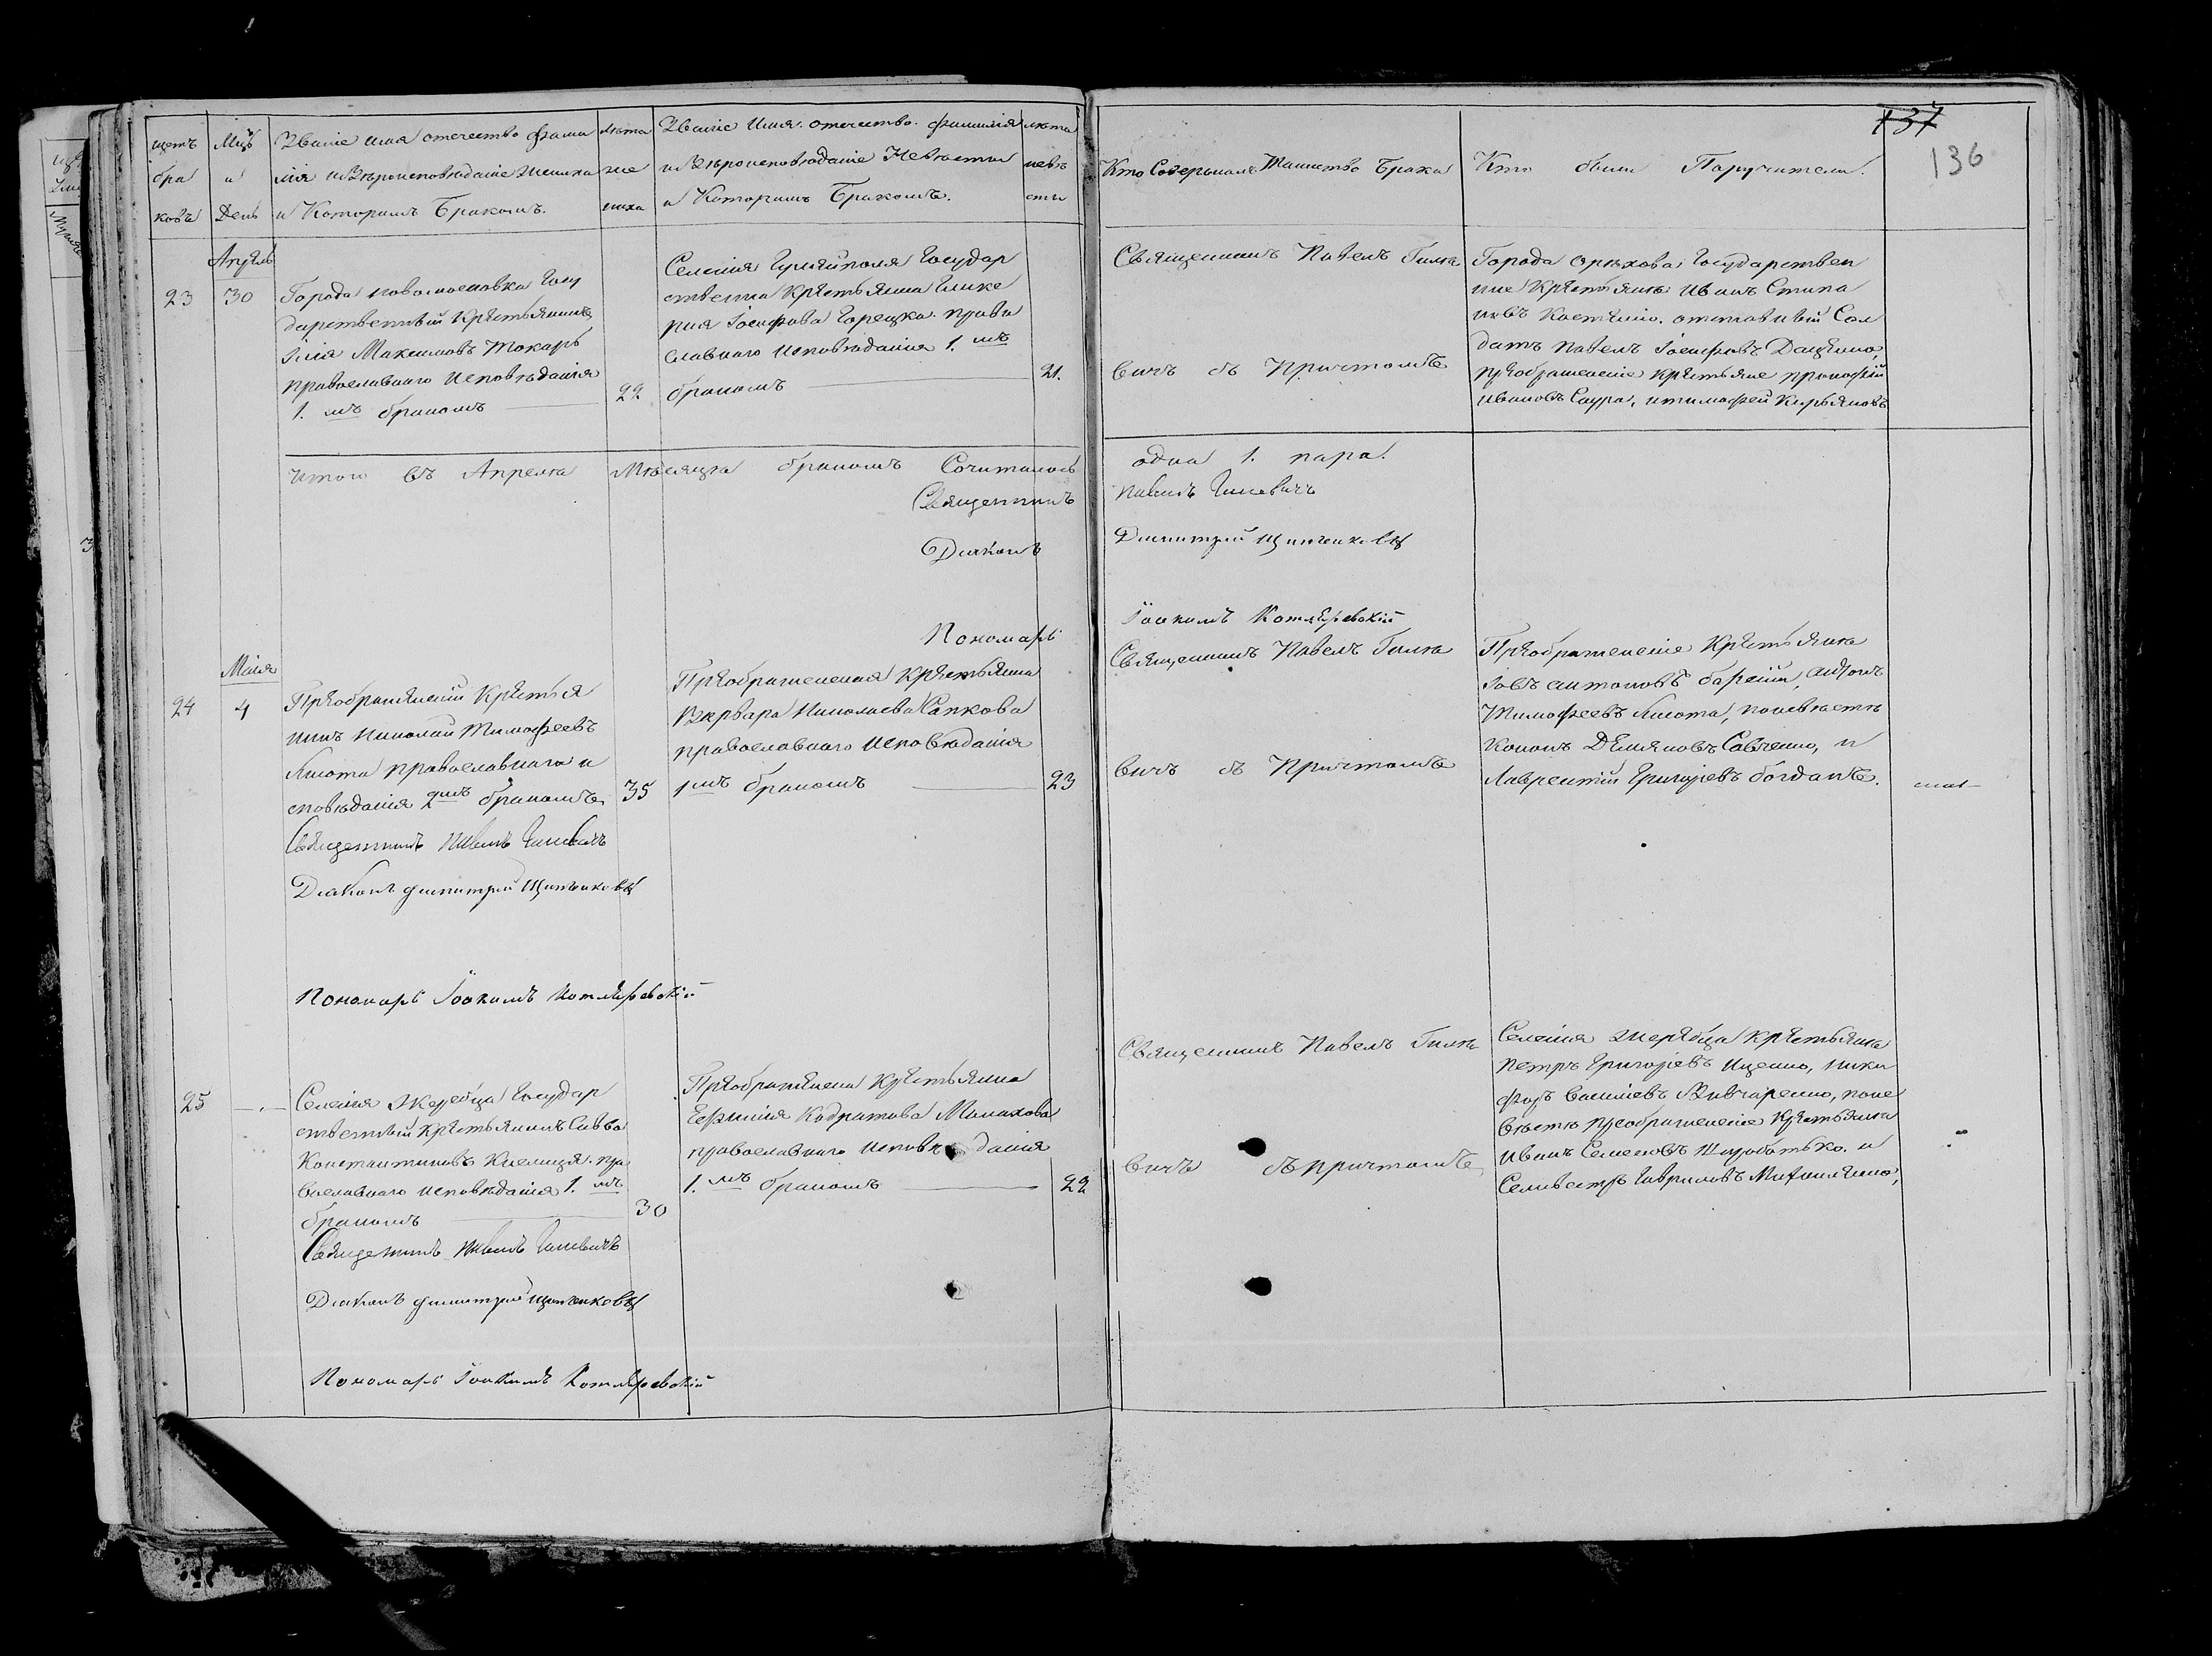 137
136
щетъ
бра
ковъ
Мцъ
и
День
Званіе имя отечество фами
лія и Вѣроисповѣданіе жениха
и Которимъ Бракомъ.
лѣта
же
ниха
Званіе Имя. отечество. фамилія
и Вѣроисповѣданіе Невѣсти
и Которимъ Бракомъ.
лѣта
невѣ
сти
Кто Совершалъ Таинство Брака
Кто были Паручители.
Апрѣль
23
30
Города новомосковка Госу
дарственный Крѣстьянинъ
Ілія Максимовъ Токарь
православнаго Исповѣданія
1. мъ бракомъ
22
Селенія Гуляйполя Государ
ственна Крѣстьянка Глике
рія Іосифова Горецка. право
славнаго исповѣданія 1. мъ
бракомъ
21.
Священникъ Павелъ Гилко
вичъ съ Причтомъ
Города Орѣхова Государствен
ние Крѣстьяне Иванъ Стипа
новъ Костенко. отставный Сол
датъ Павелъ Іосифовъ Даценко,
прѣображенскіе крѣстьяне прокофій
Ивановъ Саура, и тимофей Кирьяновъ
итого въ Апрелѣ Мѣсяцѣ бракомъ Сочиталось
одна 1. пара.
Священникъ
Павелъ Гилкевичъ
Діяконъ
Димитрій
Пономарь
Іоакимъ Котляревскій
Маія
24
4
Прѣображенскій Крѣстья
нинъ Николай Тимофеевъ
православнаго и
сповѣданія 2мъ бракомъ
35
Священникъ Павелъ Гилкевичъ
Діяконъ Димитрій
Пономарь Іоакимъ Котляревскій
Прѣображенская Крѣстьянка
Варвара Николаева Сапкова
православнаго исповѣданія
1мъ бракомъ
23
Священникъ Павелъ Гилко
вичъ съ Причтомъ
Прѣображенскіе Крѣстьяне
Іовъ антоновъ антонъ
Тимофеевъ поневѣстѣ
Кононъ Демяновъ Савченко, и
Лаврентій Григорьевъ богданъ.
25
Селенія Жеребца Государ
ственный Крѣстьянинъ Савва
Константиновъ Кислица. пра
вославнаго исповѣданія 1. мъ
бракомъ
30
Священникъ Павелъ Гилкевичъ
Діяконъ Димитрій
Пономарь Іоакимъ Котляревскій
Прѣображенска Крѣстьянка
Ефимія Кодратова Малахова
православнаго исповѣданія
1. мъ бракомъ
22
Священникъ Павелъ Гилко
вичъ съ причтомъ
Селенія Жерѣбца Крѣстьяне
Петръ Григорьевъ Ищенко, Ники
форъ Василіевъ Вивчаренко, поне
вѣстѣ преображенскіе Крѣстьяне
Иванъ Семеновъ и
Селивестръ Гавриловъ